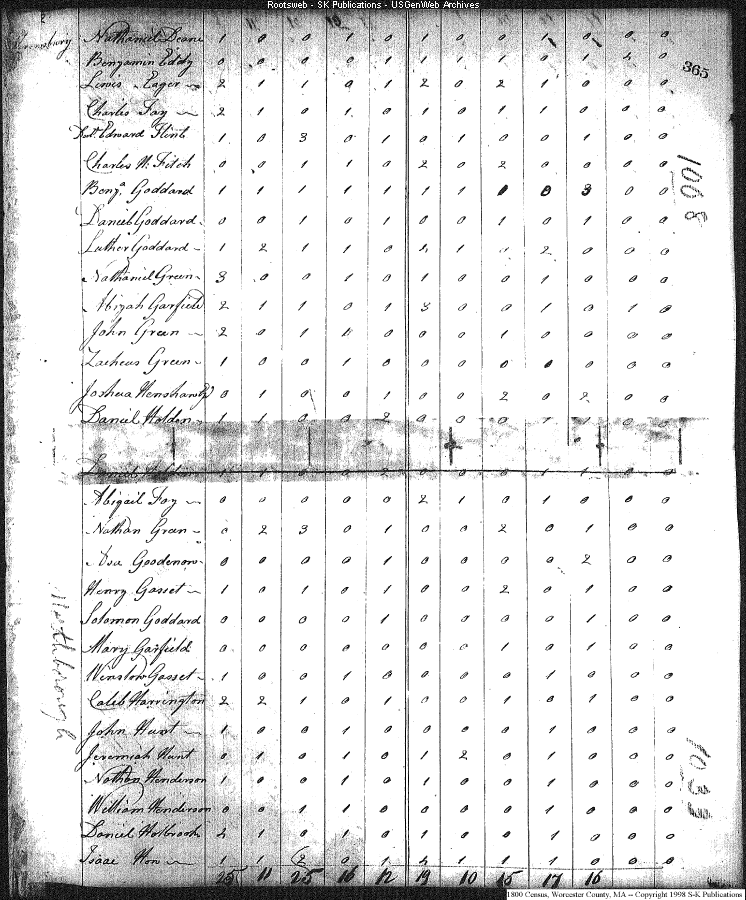 Rootsweb - SK Publications - USGenWeb Archives
365
Nathaniel Deane 1 0 0 1 0 1 0 0 1 0 0 0
Benjamin Eddy 0 0 0 0 1 1 1 1 0 1 4 0
Lewis Eager 2 1 1 0 1 2 0 2 1 0 0 0
Charles Fay 2 1 0 1 0 1 0 1 1 0 0 0
Edward Flint 1 0 3 0 1 0 1 0 0 1 0 0
Charles H. Fitch 0 0 1 1 0 2 0 2 0 0 0 0
Benja. Goddard 1 1 1 1 1 1 1 0 0 3 0 0
1008
Daniel Goddard 0 0 1 0 1 0 0 1 0 1 0 0
Luther Goddard 1 2 1 1 0 4 1 2 0 0 0
Nathaniel Green 3 0 0 1 0 1 0 0 1 0 0 0
Abijah Garfield 2 1 1 0 1 3 0 0 1 0 1 0
John Green 2 0 1 1 0 0 0 1 0 0 0 0
Zacheus Green 1 0 0 1 0 0 0 0 0 0 0
Joshua Henshaw 0 1 0 0 1 0 0 2 0 2 0 0
Daniel Holden 1 1 0 0 2 0 0 0 1 1 0 0
Daniel Holden 1 1 0 0 2 0 0 0 1 1 0 0
Abigail Fay 0 0 0 0 0 2 1 0 1 0 0 0
Nathan Green 0 2 3 0 1 0 0 2 0 1 0 0
Asa Goodenow 0 0 0 0 1 0 0 0 0 2 0 0
Henry Gasset 1 0 1 0 1 0 0 2 0 1 0 0
Northborough
Solomon Goddard 0 0 0 0 1 0 0 0 0 1 0 0
Mary Garfield 0 0 0 0 0 0 0 1 0 1 0 0
Winslow Gasset 1 0 0 1 0 0 0 0 1 0 0 0
Caleb Harrington 2 2 1 0 1 0 0 1 0 1 0 0
John Hunt 1 0 0 1 0 0 0 0 1 0 0 0
Jeremiah Hunt 0 1 0 1 0 1 2 0 1 0 0 0
1033
Nathan Henderson 1 0 0 1 0 1 0 0 1 0 0 0
William Henderson 0 0 1 1 0 0 0 0 1 0 0 0
Daniel Holbrook 4 1 0 1 0 1 0 0 1 0 0 0
Isaac How 1 1 2 0 1 4 1 1 1 0 0 0
25 11 25 16 12 19 10 15 17 16
1800 Census, Worcester County, MA -- Copyright 1998 S-K Publications